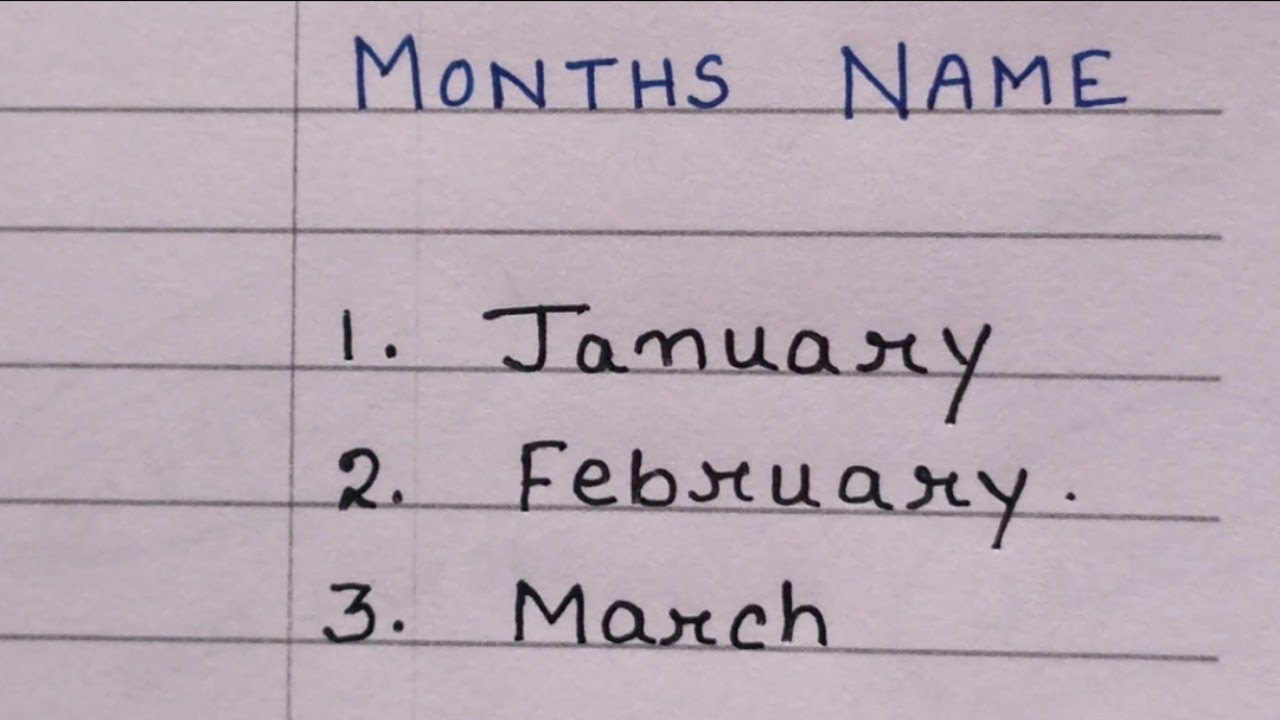 MONTHS NAME
1. January
2. February.
3. March